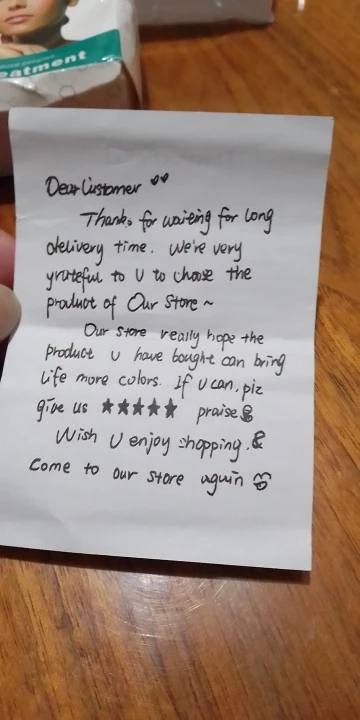 eatment
Dear Customer ♥♥
Thanks for waiting for long
delivery time. We're very
grateful to U to choose the
product of Our Store ~
Our store really hope the
product U have bought can bring
life more colors. If U can, plz
give us ★★★★★ praise
Wish U enjoy shopping.
Come to our store again